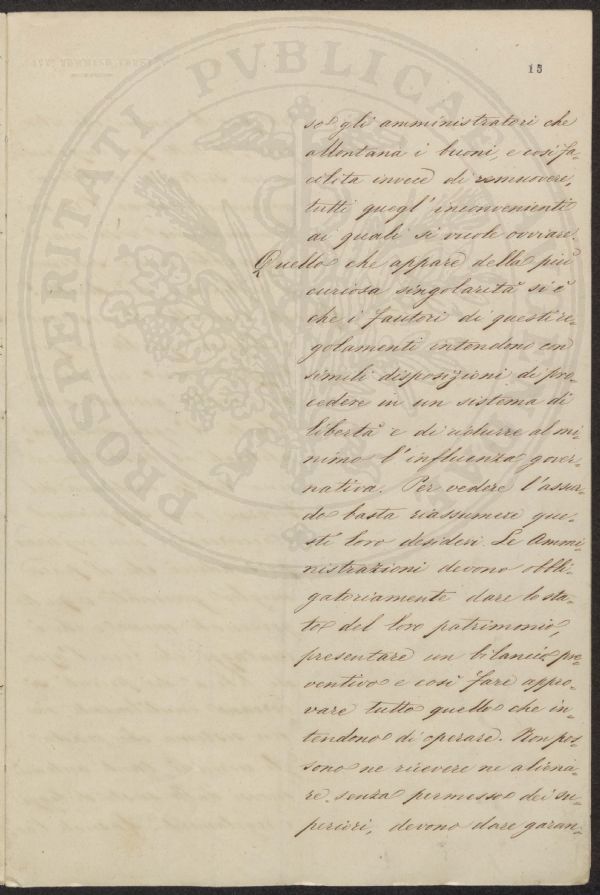 15
so gli amministratori che
allontana i buoni, e così fa-
cilita invece di remuovere,
tutti quegl' inconvenienti
ai quali si vuole ovviare.
Quello che appare della più
curiosa singolarità si è
che i fautori di questi re-
golamenti intendono con
simili disposizioni di pro-
cedere in un sistema di
libertà e di ridurre al mi-
nimo l'influenza gover-
nativa. Per vedere l'assur-
do basta riassumere que-
sti loro desideri. Le Ammi-
nistrazioni devono obbli-
gatoriamente dare lo sta-
to del loro patrimonio,
presentare un bilancio pre-
ventivo e così fare appro-
vare tutto quello che in-
tendono di operare. Non pos-
sono ne ricevere ne aliena-
re senza permesso dei su-
periori, devono dare garan-
PROSPERITATI PVBLICA